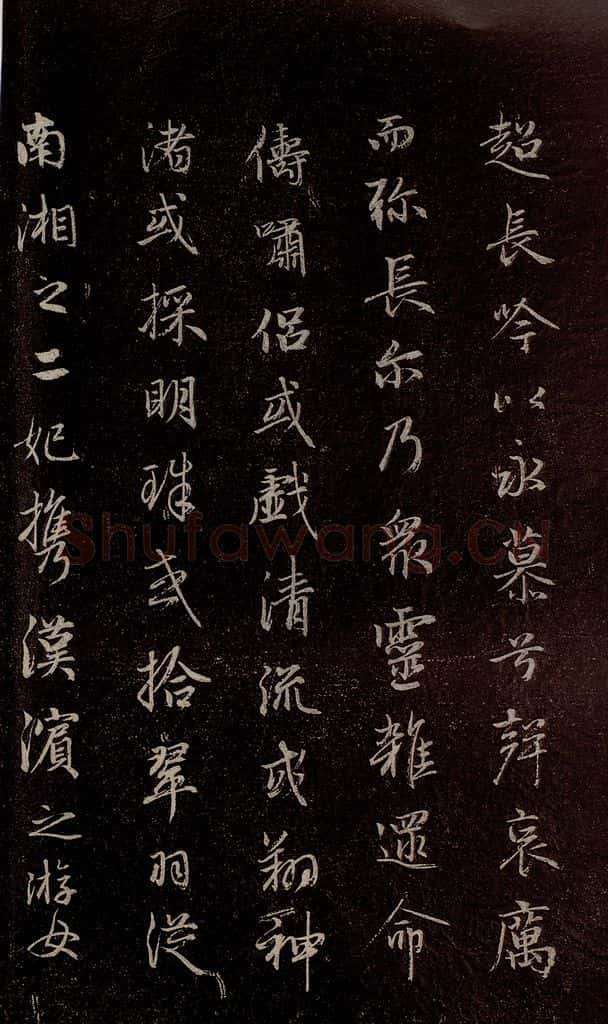 超長吟以永慕兮聲哀厲
而弥長尔乃衆靈雜遝命
儔嘯侣或戲清流或翔神
渚或採明珠或拾翠羽從
南湘之二妃携漢濱之游女
Shufawang.cn